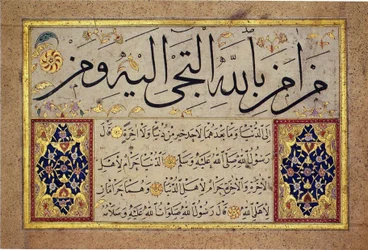 من امن بالله التجى اليه ومن
الى الدنيا وما بعدهما لاحد من دنيا ولا اخرة قال
رسول الله صلى الله عليه وسلم الدنيا حرام لاهل
الاخرة والاخرة حرام لاهل الدنيا وهما حرامان
لاهل الله قال رسول الله صلوات الله عليه وسلامه